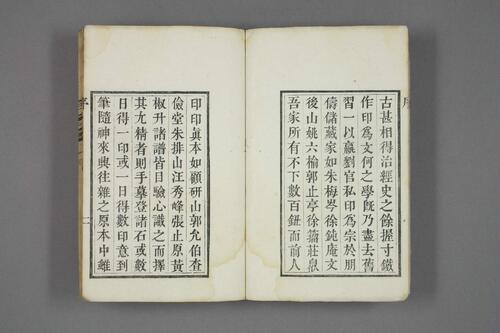 序
古甚相得治經史之餘握寸鐵
作印爲文何之學旣乃盡去舊
習一以嬴劉官私印爲宗於朋
儔儲藏家如朱梅岑徐鈍庵文
後山姚六榆郭止亭徐籀莊嶽
吾家所有不下數百鈕而前人
印印眞本如顧研山郭允伯查
儉堂朱排山汪秀峰張止原黃
椒升諸譜皆目驗心識之而擇
其尤精者則手摹登諸石或數
日得一印或一日得數印意到
筆隨神來興往雜之原本中雖
序
二